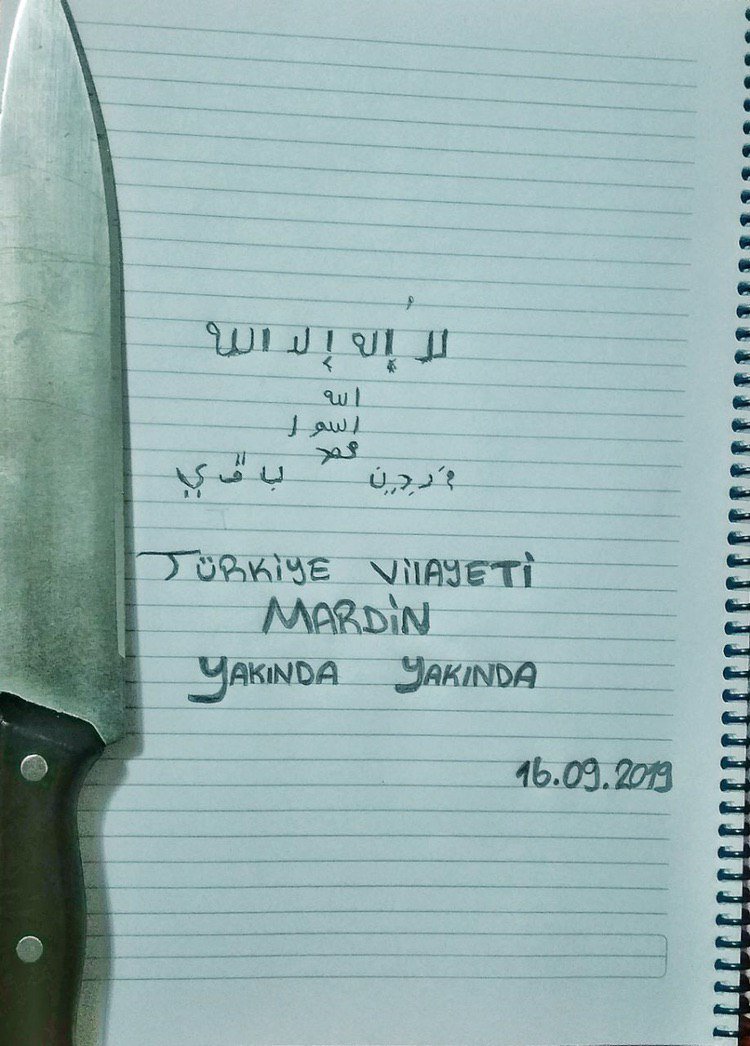 لا إله إلا الله
الله
رسول
محمد
مَردِين باقي
TÜRKİYE VİLAYETİ
MARDİN
YAKINDA YAKINDA
16.09.2019